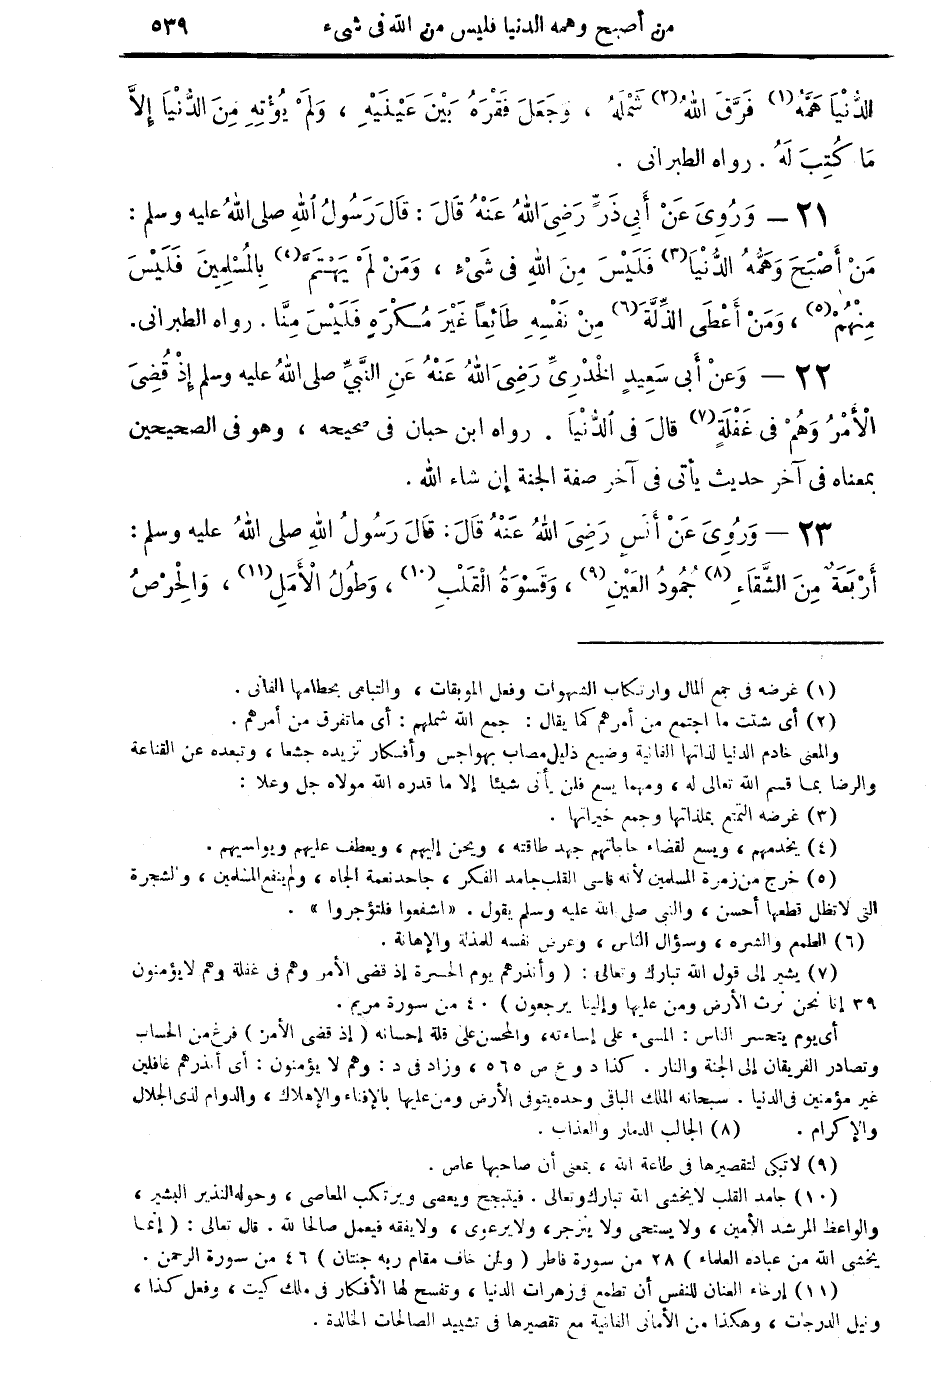 من أصبح وهمه الدنيا فليس من الله فى شىء ٥٣٩
الدُّنْيَا هَمَّهُ(١) فَرَّقَ اللهُ(٢) شَمْلَهُ ، وَجَعَلَ فَقْرَهُ بَيْنَ عَيْنَيْهِ ، وَلَمْ يُؤْتِهِ مِنَ الدُّنْيَا إِلاَّ
مَا كُتِبَ لَهُ . رواه الطبرانى .
٢١ — وَرُوِىَ عَنْ أَبِى ذَرٍّ رَضِىَ اللهُ عَنْهُ قَالَ : قَالَ رَسُولُ اللهِ صلى اللهُ عليه وسلم :
مَنْ أَصْبَحَ وَهَمُّهُ الدُّنْيَا(٣) فَلَيْسَ مِنَ اللهِ فى شَىْءٍ ، وَمَنْ لَمْ يَهْتَمَّ(٤) بِالْمُسْلِمِينَ فَلَيْسَ
مِنْهُمْ(٥) ، وَمَنْ أَعْطَى الذِّلَّةَ(٦) مِنْ نَفْسِهِ طَائِعاً غَيْرَ مُكْرَهٍ فَلَيْسَ مِنَّا . رواه الطبرانى.
٢٢ — وَعَنْ أَبى سَعِيدٍ الْخُدْرِىِّ رَضِىَ اللهُ عَنْهُ عَنِ النَّبِىِّ صلى اللهُ عليه وسلم إِذْ قُضِىَ
الْأَمْرُ وَهُمْ فى غَفْلَةٍ(٧) قَالَ فى الدُّنْيَا . رواه ابن حبان فى صحيحه ، وهو فى الصحيحين
بمعناه فى آخر حديث يأتى فى آخر صفة الجنة إن شاء الله .
٢٣ — وَرُوِىَ عَنْ أَنَسٍ رَضِىَ اللهُ عَنْهُ قَالَ : قَالَ رَسُولُ اللهِ صلى اللهُ عليه وسلم :
أَرْبَعَةٌ مِنَ الشَّقَاءِ(٨) جُمُودُ الْعَيْنِ(٩) ، وَقَسْوَةُ الْقَلْبِ(١٠) ، وَطُولُ الْأَمَلِ(١١) ، وَالْحِرْصُ
(١) غرضه فى جمع المال وارتكاب الشهوات وفعل الموبقات ، والتباهى بحطامها الفانى .
(٢) أى شتت ما اجتمع من أمرهم كما يقال : جمع الله شملهم : أى ماتفرق من أمرهم .
والمعنى خادم الدنيا لذاتها الفانية وضيع ذليل مصاب بهواجس وأفكار تزيده جشعا ، وتبعده عن القناعة
والرضا بما قسم الله تعالى له ، ومهما يسع فلن يأتى شيئا إلا ما قدره الله مولاه جل وعلا :
(٣) غرضه التمتع بملذاتها وجمع خيراتها .
(٤) يخدمهم ، ويسع لقضاء حاجاتهم جهد طاقته ، ويحن إليهم ، ويعطف عليهم ويواسيهم .
(٥) خرج من زمرة المسلمين لأنه قاسى القلب جامد الفكر ، جاحد نعمة الجاه ، ولم ينفع المسلمين ، والشجرة
التى لاتظل قطعها أحسن ، والنبى صلى الله عليه وسلم يقول . « اشفعوا فلتؤجروا » .
(٦) الطمع والشره ، وسؤال الناس ، وعرض نفسه للمذلة والإهانة .
(٧) يشير إلى قول الله تبارك وتعالى : ( وأنذرهم يوم الحسرة إذ قضى الأمر وهم فى غفلة وهم لايؤمنون
٣٩ إنا نحن نرث الأرض ومن عليها وإلينا يرجعون ) ٤٠ من سورة مريم .
أى يوم يتحسر الناس : المسىء على إساءته، والمحسن على قلة إحسانه ( إذ قضى الأمر ) فرغ من الحساب
وتصادر الفريقان إلى الجنة والنار . كذا د و ع ص ٥٦٥ ، وزاد فى د : وهم لا يؤمنون : أى أنذرهم غافلين
غير مؤمنين فى الدنيا . سبحانه الملك الباقى وحده يتوفى الأرض ومن عليها بالإفناء والإهلاك ، والدوام لذى الجلال
والإكرام . (٨) الجالب الدمار والعذاب .
(٩) لاتبكى لتقصيرها فى طاعة الله ، بمعنى أن صاحبها عاص .
(١٠) جامد القلب لايخشى الله تبارك وتعالى . فيتبجح ويعصى ويرتكب المعاصى ، وحوله النذير البشير ،
والواعظ المرشد الأمين ، ولا يستحى ولا ينزجر، ولا يرعوى ، ولايفقه فيعمل صالحا لله . قال تعالى : ( إنما
يخشى الله من عباده العلماء ) ٢٨ من سورة فاطر ( ولمن خاف مقام ربه جنتان ) ٤٦ من سورة الرحمن .
(١١) إرخاء العنان للنفس أن تطمع فى زهرات الدنيا ، وتفسح لها الأفكار فى ملك كيت ، وفعل كذا ،
ونيل الدرجات ، وهكذا من الأمانى الفانية مع تقصيرها فى تشييد الصالحات الخالدة .